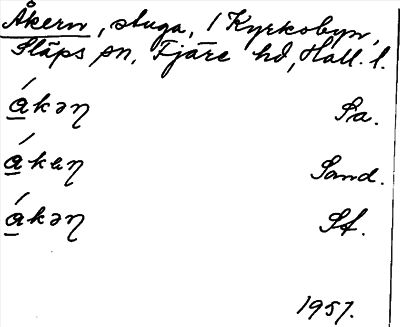 Åkern, stuga, i Kyrkobyn,
Släps sn, Fjäre hd, Hall. l.
ákəη Sa.
ákɐη Sand.
ákəη St.
1957.